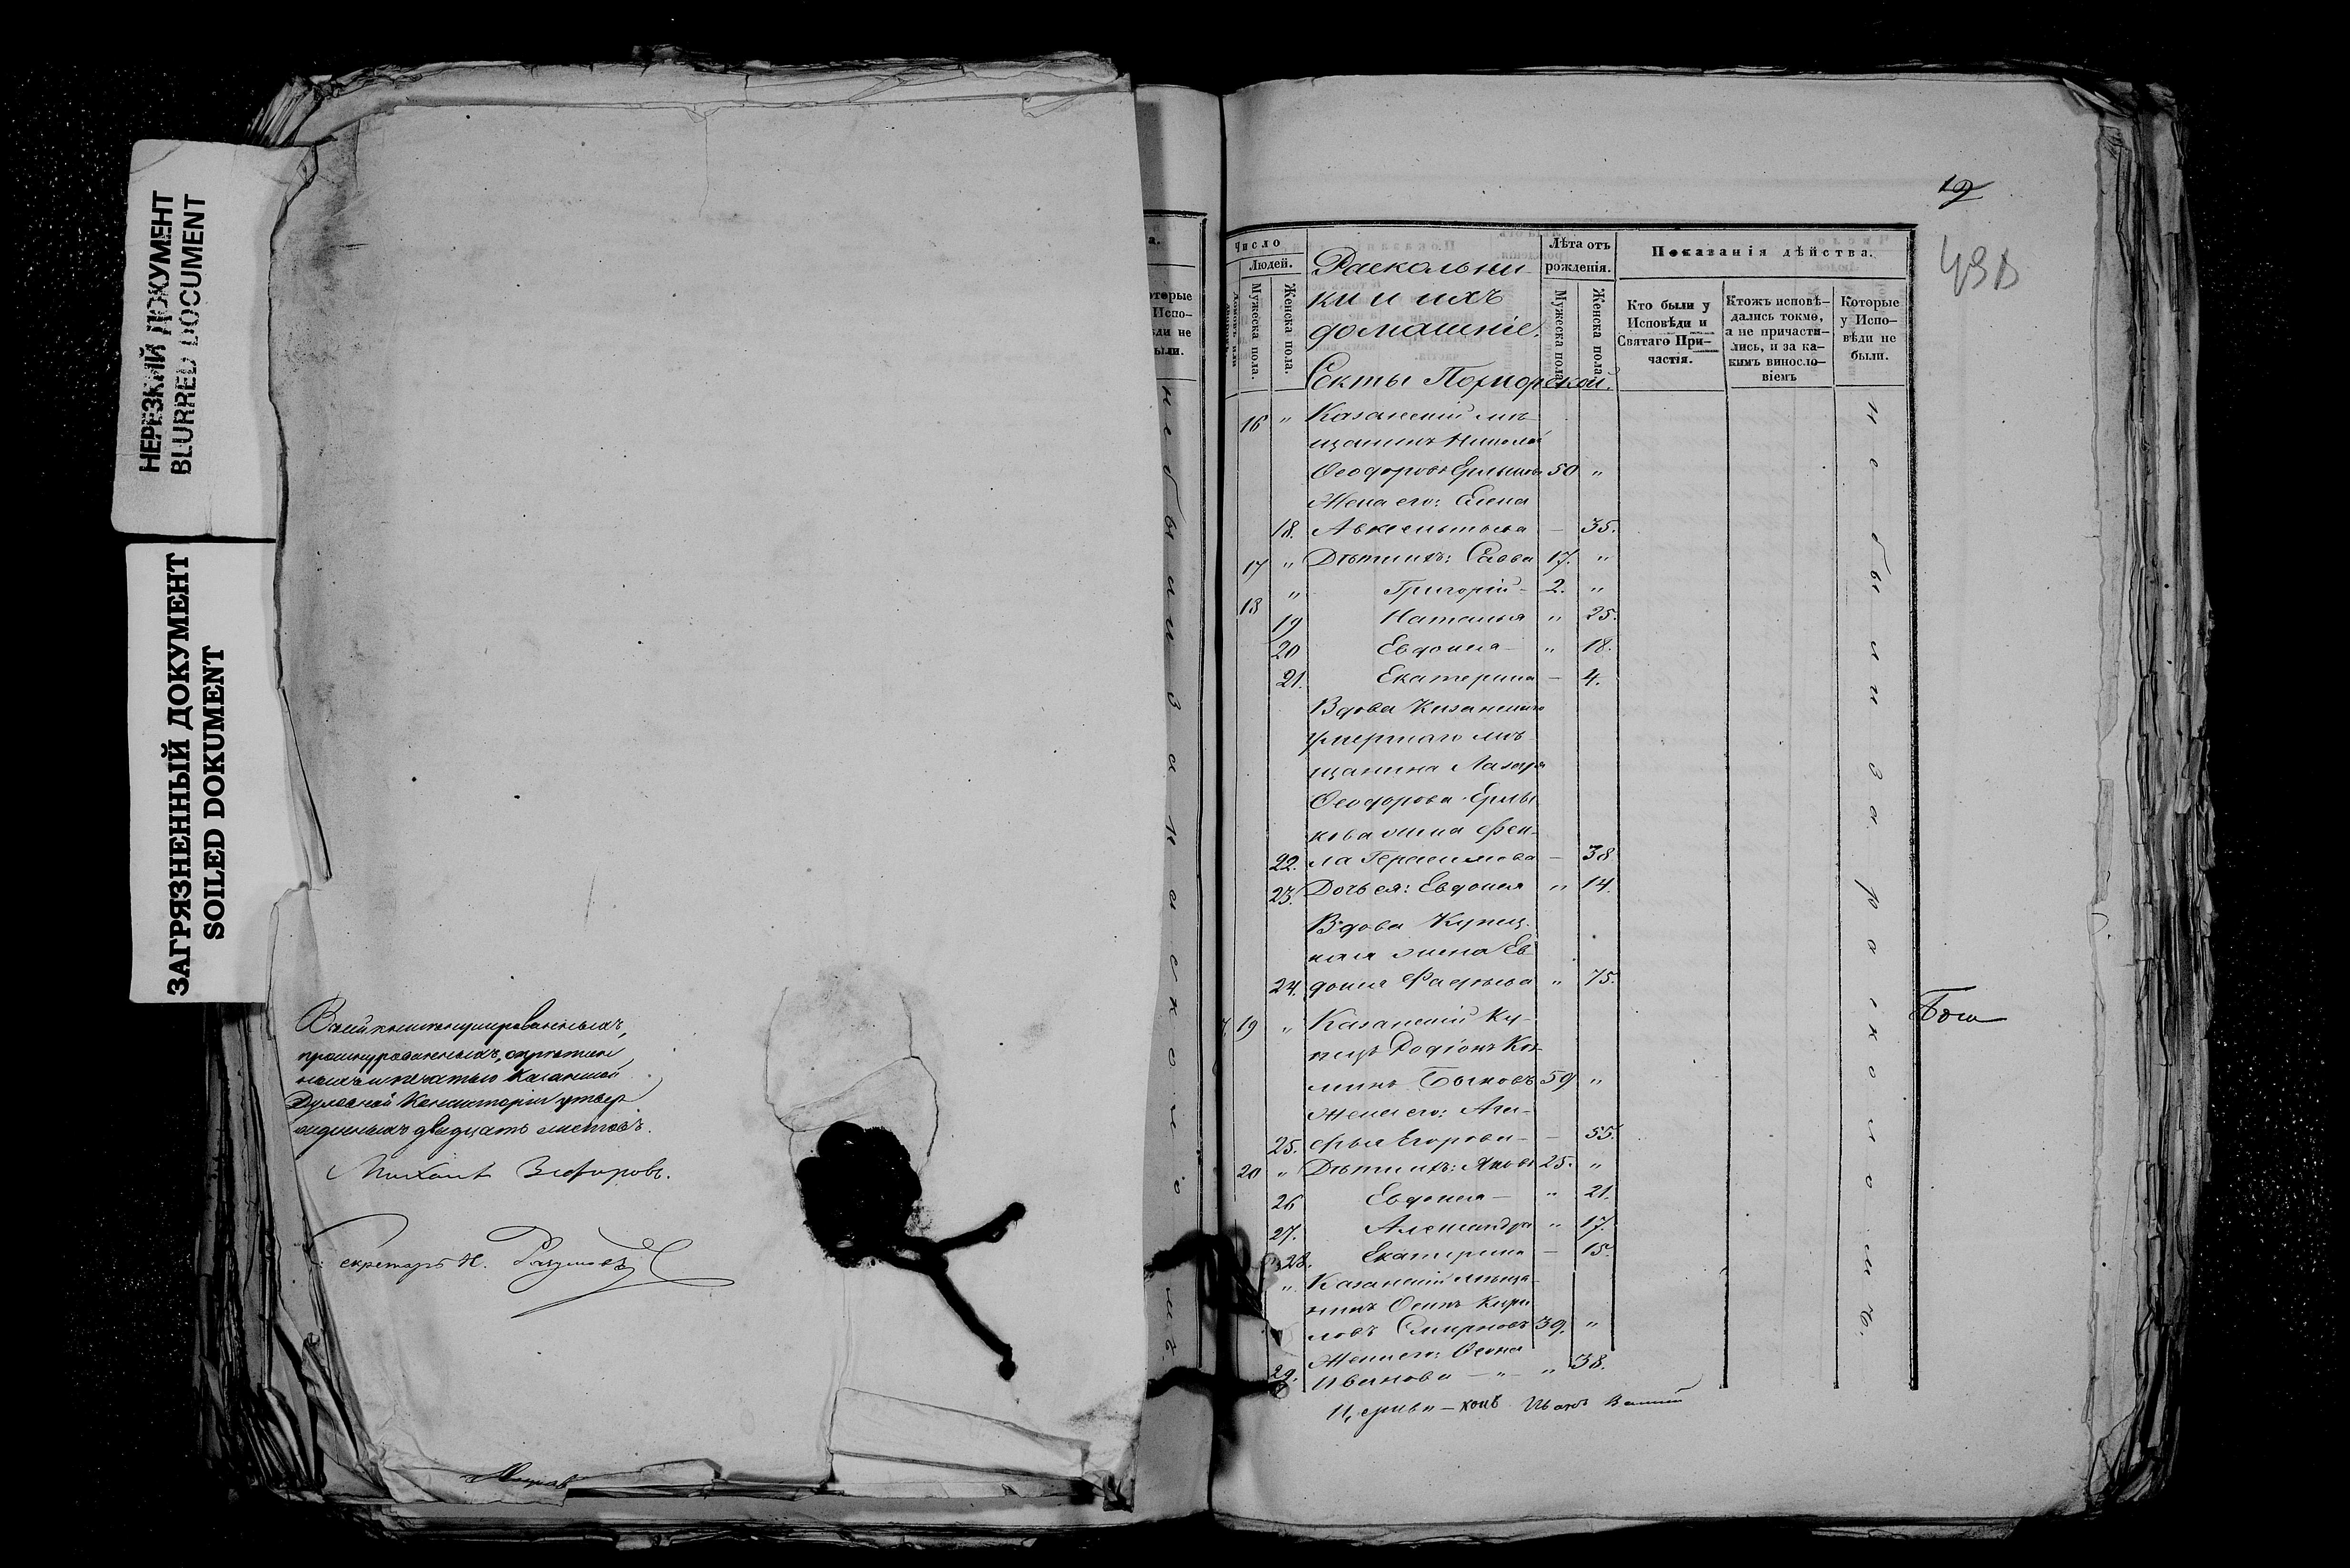 НЕРЕЗКИЙ ДОКУМЕНТ
BLURRED DOCUMENT
ЗАГРЯЗНЕННЫЙ ДОКУМЕНТ
SOILED DOKUMENT
В сей книге нумерованныхъ,
прошнурованныхъ, скрѣплен
ныхъ и печатью Казанской
Духовной Консисторіи утвер
жденныхъ двадцать листовъ.
Михаилъ Зефировъ.
Секретарь Н. Разумовъ
не были за расколомъ.
19
Число
Людей.
Мужеска пола.
Женска пола.
Раскольни
ки и ихъ
домашніе.
Секты Поморской.
Лѣта отъ
рожденія.
Мужеска пола.
Женска пола.
Показанія дѣйства.
Кто были у
Исповѣди и
Святаго При-
частія.
Ктожъ исповѣ-
дались токмо,
а не причасти-
лись, и за ка-
кимъ винословіемъ
Которые
у Испо-
вѣди не
были.
16 " Казанскій мѣ
щанинъ Николай
Ѳеодоровъ Ерлыковъ 50 "
Жена его: Елена
18. Авксентьева — 35.
17 " Дѣти ихъ: Савва 17. "
18 " Григорій - 2. "
19 Наталья " 25.
20 Евдокія — " 18.
21. Екатерина — 4.
Вдова Казанскаго
умершаго мѣ
щанина Лазаря
Ѳеодорова Ерлы
кова жена Ѳек-
22. ла Герасимова — 38
23. Дочь ея: Евдокія " 14.
Вдова Купец.
кая жена Ев
24. докія " 75.
19 " Казанскій Ку-
пецъ Родіонъ Коз
минъ Быковъ 59 "
Жена его: Ага-
25. фья Егорова — 55.
20 " Дѣти ихъ: Яковъ 25. "
26 Евдокія — " 21.
27. Александра " 17.
28. Екатерина — 15.
" Казанскій мѣща-
нинъ Осипъ Кири
ловъ Смирновъ 39. "
Жена его:
29. Иванова — " — " 38.
не были за расколомъ.